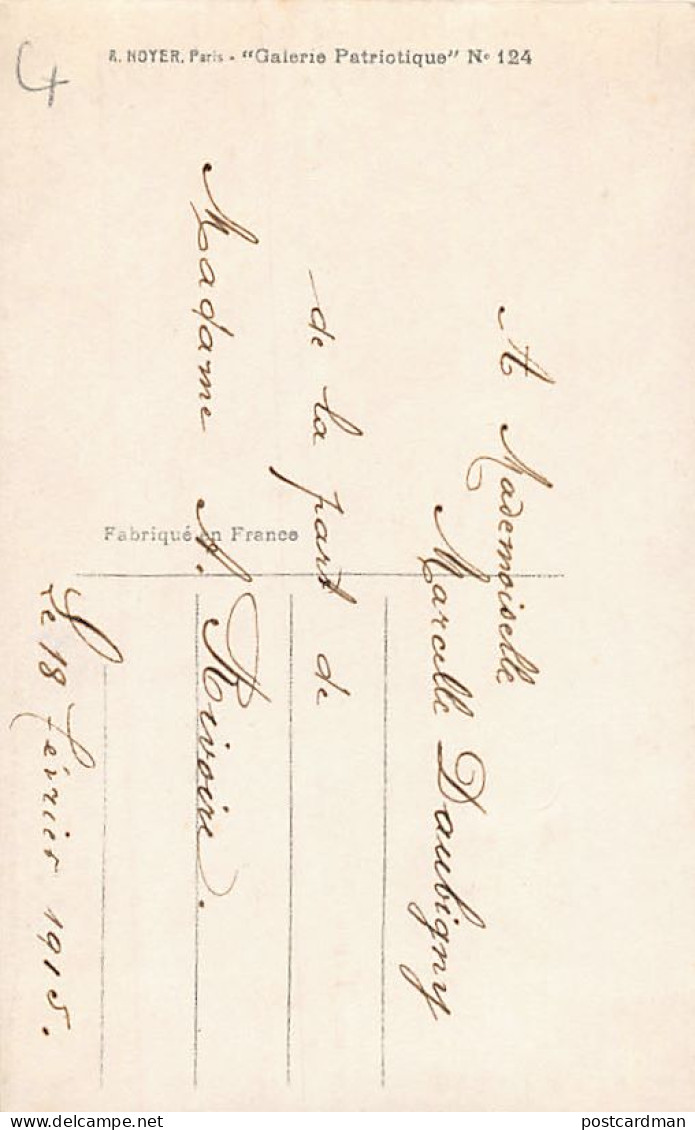 A. NOYER, Paris - "Galerie Patriotique" No 124
4
A Mademoiselle
Marcelle Daubigny
de la part de
Madame A. Rivoire.
Le 18 février 1915.
Fabriqué en France
postcardman